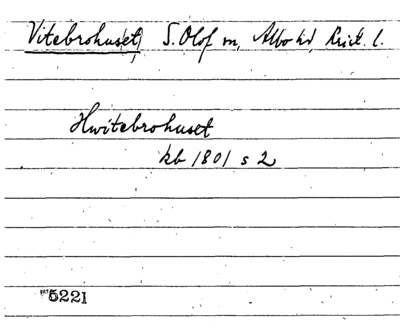 Vitebrohuset, S. Olof sn, Albo hd, Krist. l.
Hwitebrohuset
kb 1801 s 2
5221